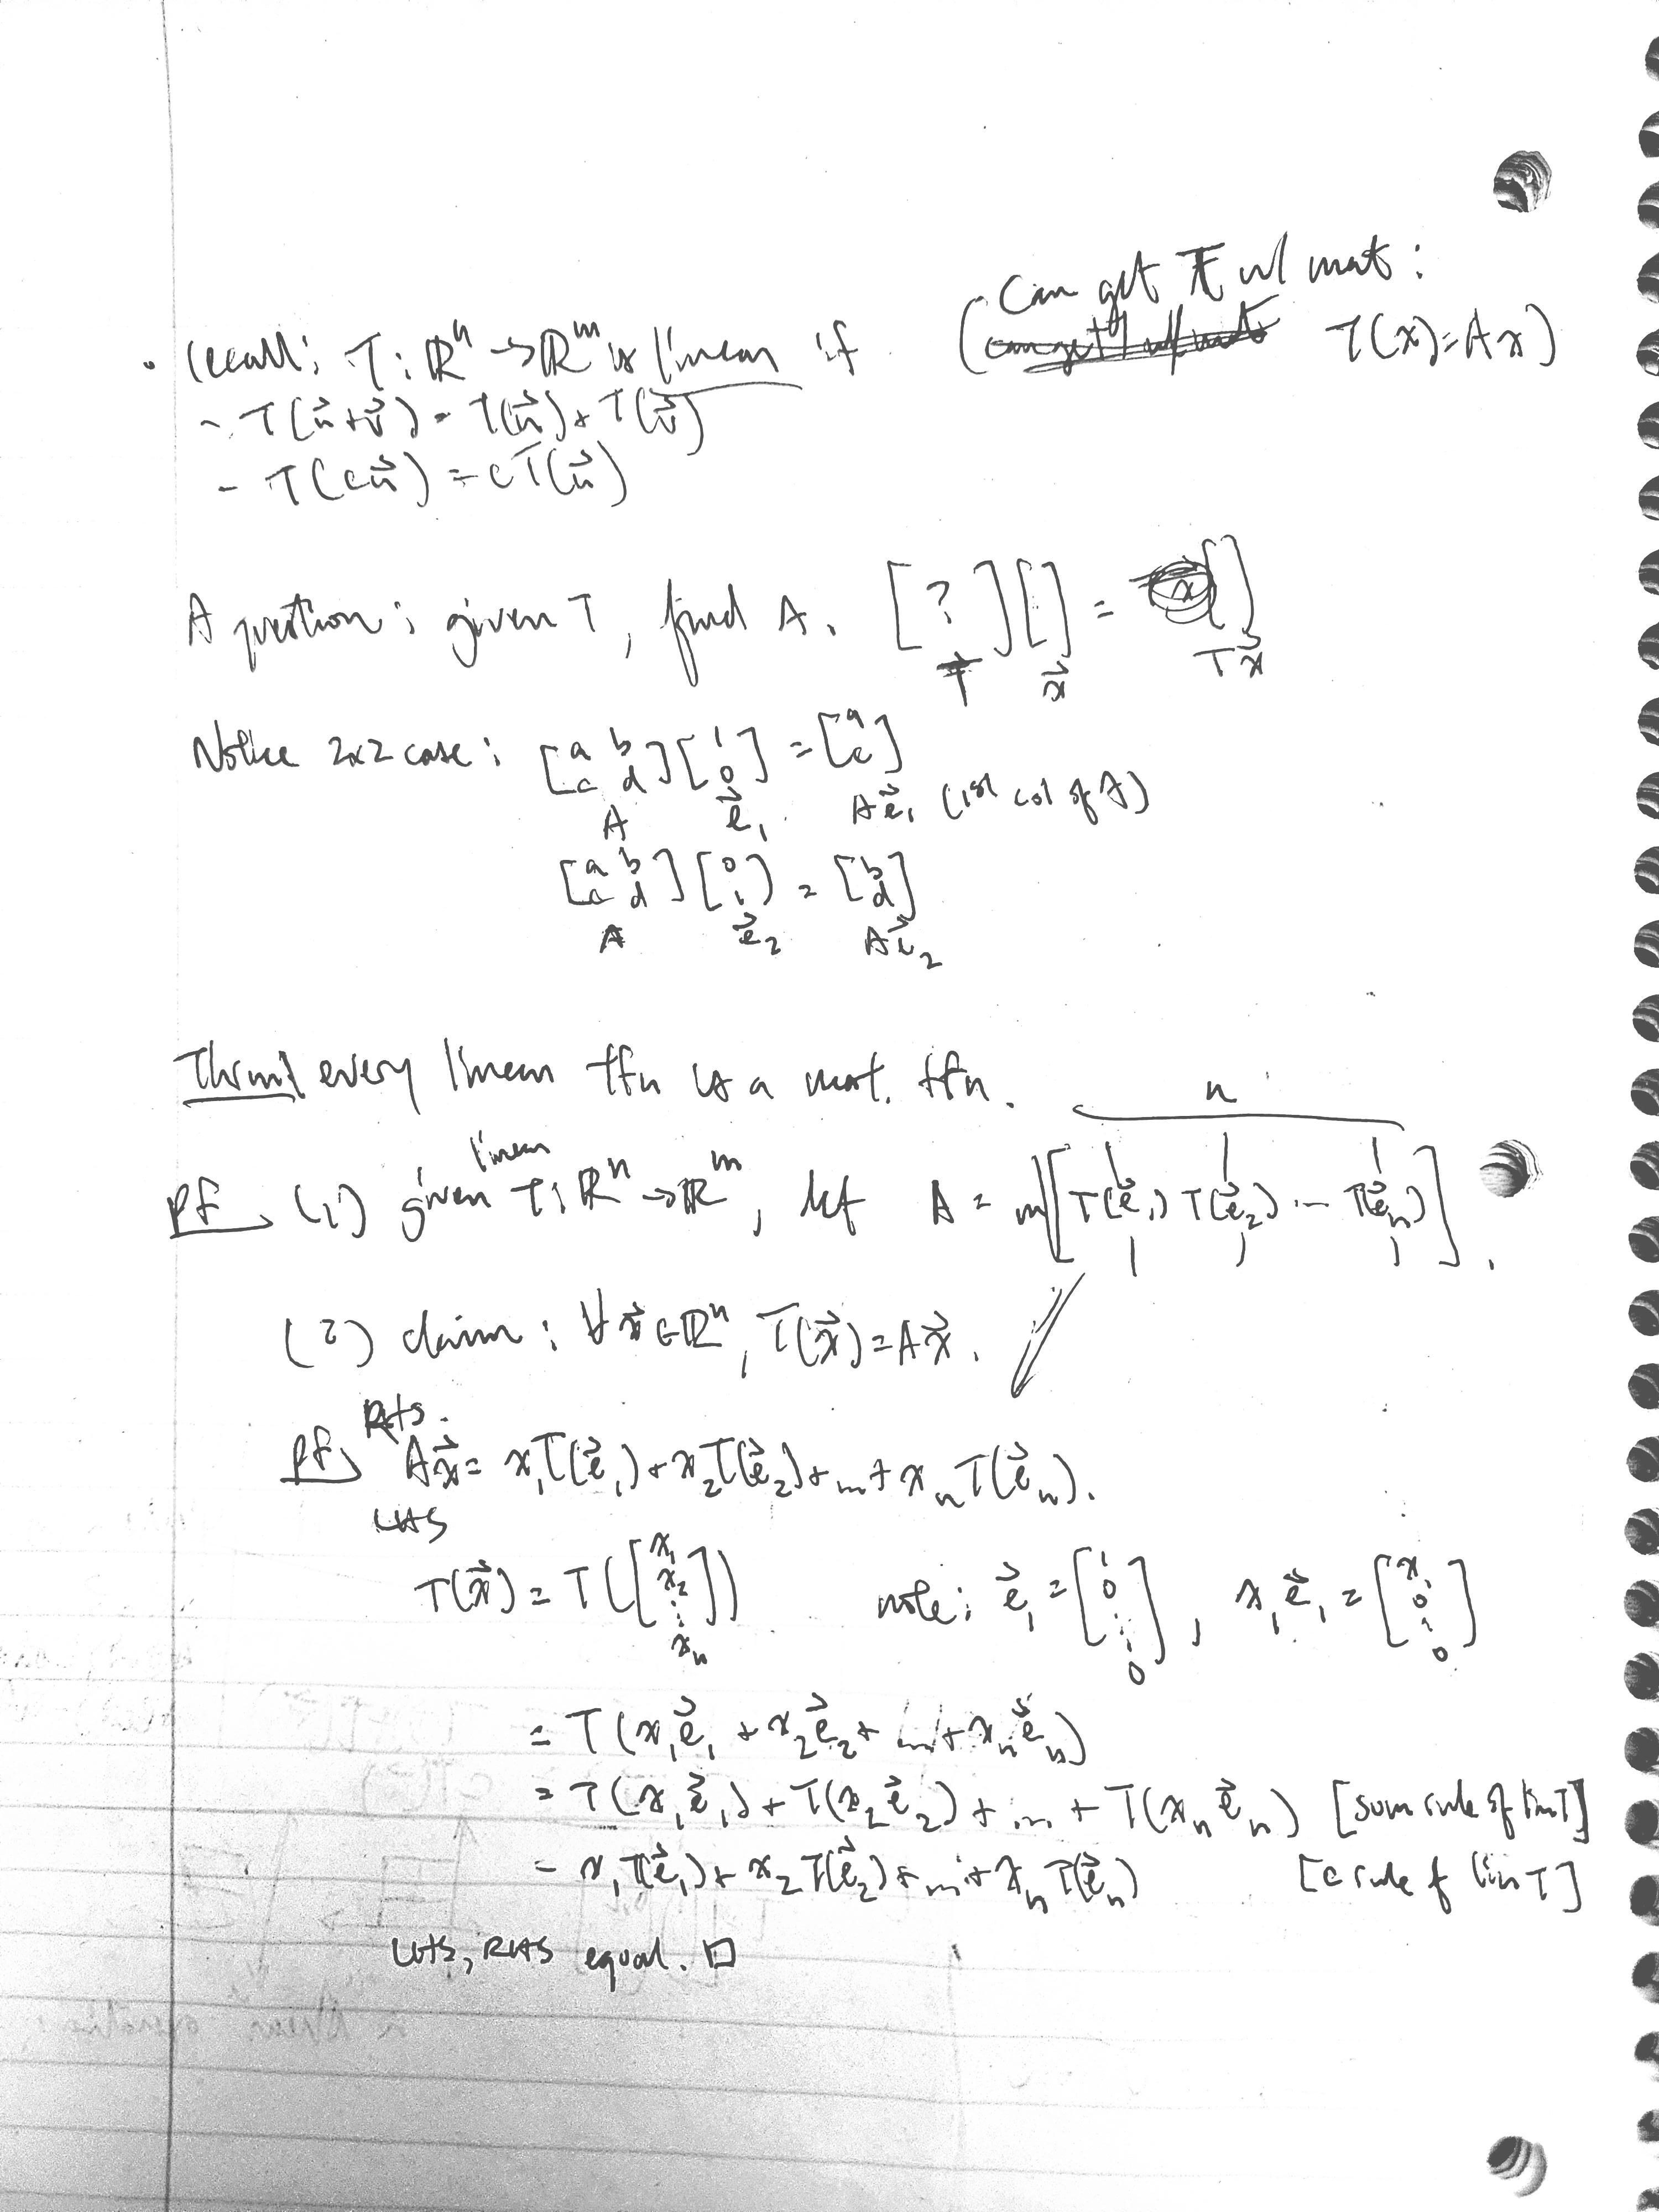 · Can get T w/ mat:
· recall: T: ℝⁿ → ℝᵐ is linear if ( T(x)=Ax)
- T(u⃗+v⃗) = T(u⃗)+T(v⃗)
- T(cu⃗) = cT(u⃗)
A question: given T, find A. [ ? ][ ] = [ ]
x⃗ Tx⃗
Notice 2x2 case: [a b; c d][1; 0] = [a; c]
A e⃗₁ Ae⃗₁ (1st col of A)
[a b; c d][0; 1] = [b; d]
A e⃗₂ Ae⃗₂
Thm) every linear tfn is a mat. tfn.
n
linear
Pf) (1) given T: ℝⁿ → ℝᵐ, let A = m[T(e⃗₁) T(e⃗₂) ... T(e⃗ₙ)].
(2) claim: ∀ x⃗ ∈ ℝⁿ, T(x⃗) = Ax⃗.
RHS.
Pf) Ax⃗ = x₁T(e⃗₁) + x₂T(e⃗₂) + ... + xₙT(e⃗ₙ).
LHS
T(x⃗) = T([x₁; x₂; ⋮; xₙ]) note: e⃗₁ = [1; 0; ⋮; 0], x₁e⃗₁ = [x₁; 0; ⋮; 0]
= T(x₁e⃗₁ + x₂e⃗₂ + ... + xₙe⃗ₙ)
= T(x₁e⃗₁) + T(x₂e⃗₂) + ... + T(xₙe⃗ₙ) [sum rule of lin T]
= x₁T(e⃗₁) + x₂T(e⃗₂) + ... + xₙT(e⃗ₙ) [c rule of lin T]
LHS, RHS equal. □